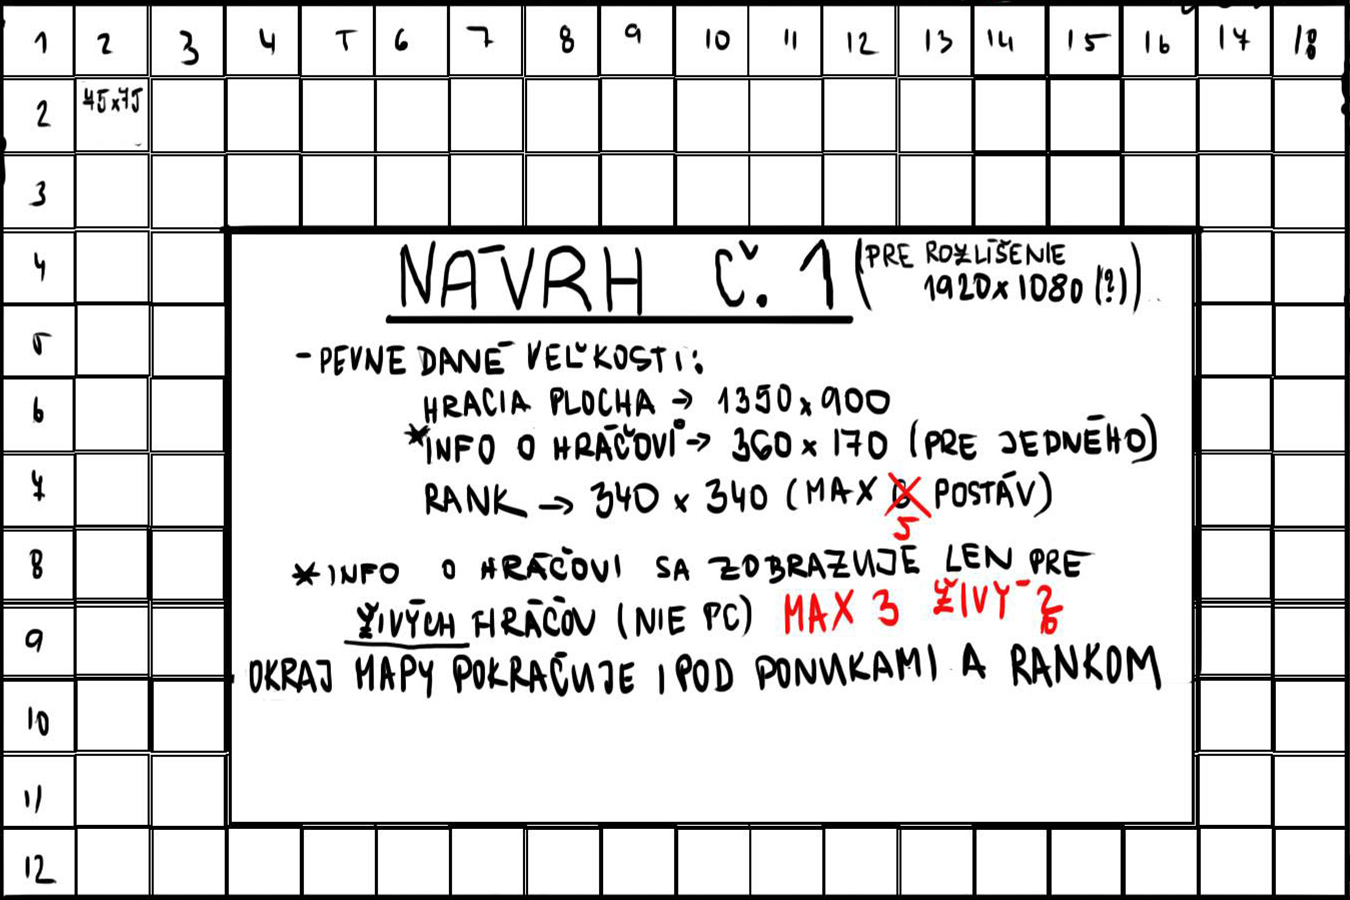 1 2 3 4 5 6 7 8 9 10 11 12 13 14 15 16 17 18
2 45x75
3
4
NÁVRH Č. 1 (PRE ROZLÍŠENIE
1920x1080 (?))
5
- PEVNE DANÉ VEĽKOSTI:
6
HRACIA PLOCHA → 1350x900
*INFO O HRÁČOVI → 360x170 (PRE JEDNÉHO)
7
RANK → 340x340 (MAX 6 POSTÁV)
5
8
*INFO O HRÁČOVI SA ZOBRAZUJE LEN PRE
9
ŽIVÝCH HRÁČOV (NIE PC) MAX 3 ŽIVÝ
OKRAJ MAPY POKRAČUJE I POD PONUKAMI A RANKOM
10
11
12